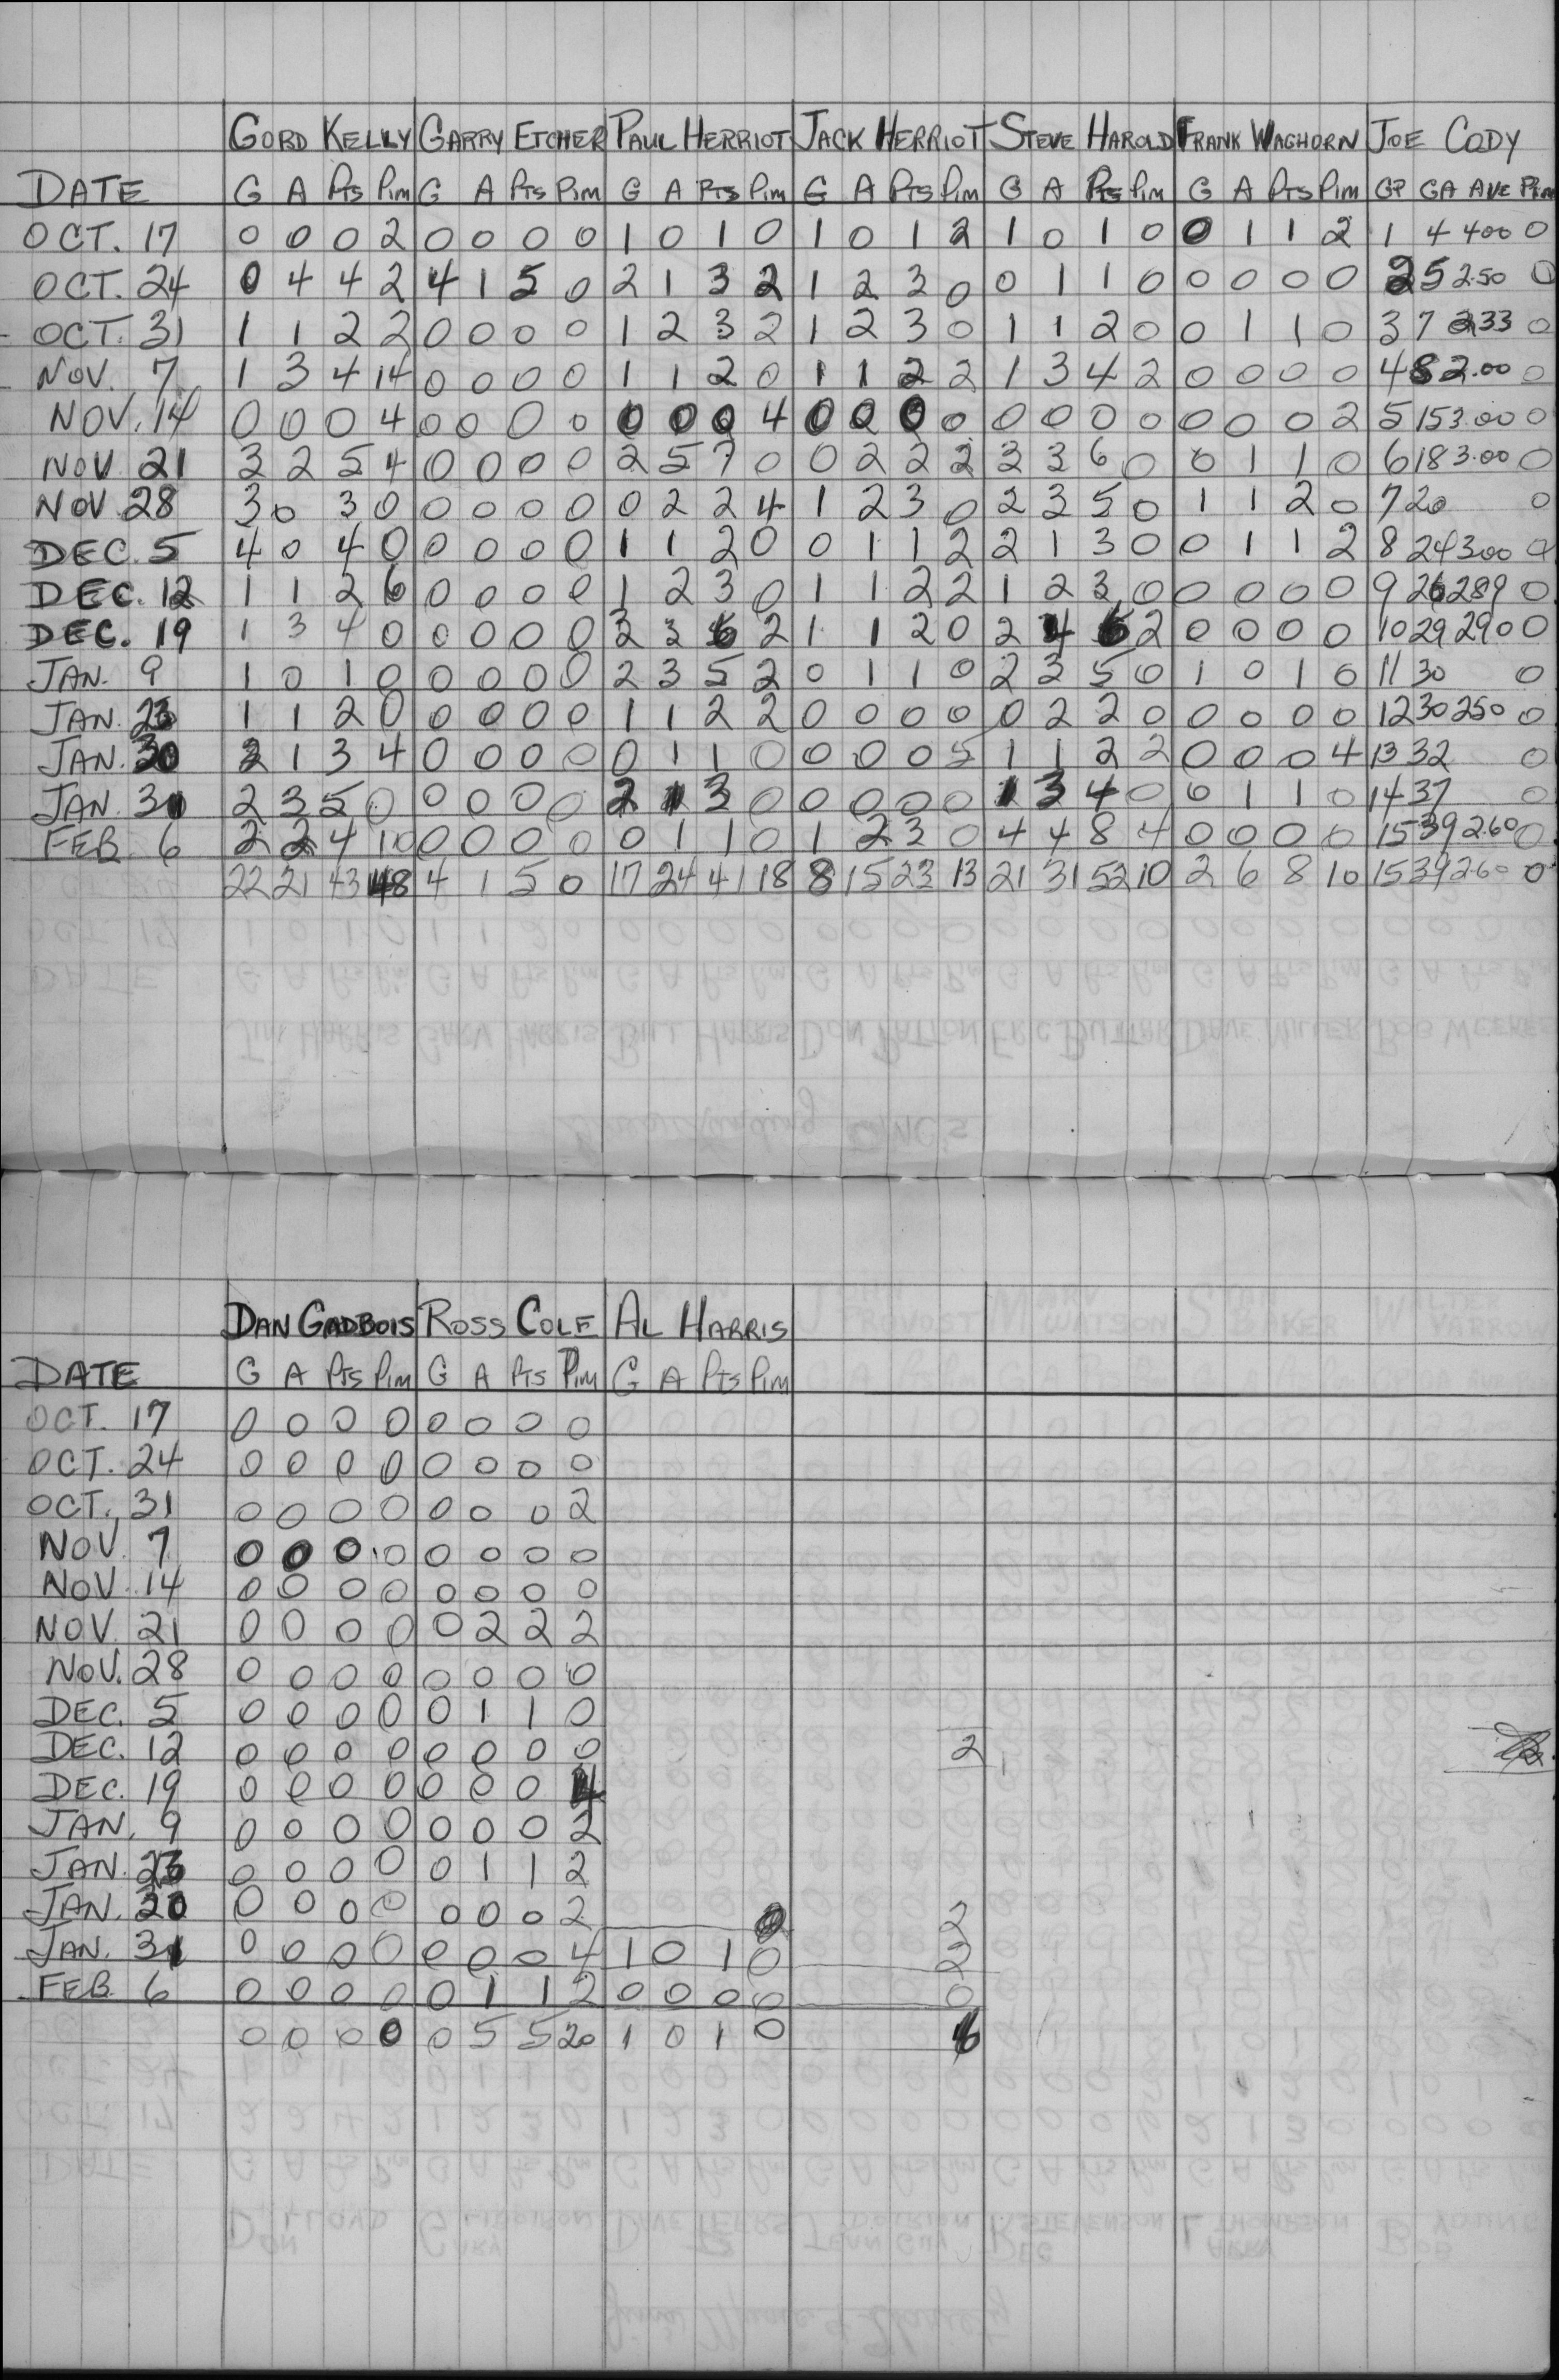 GORD KELLY GARRY ETCHER PAUL HERRIOT JACK HERRIOT STEVE HAROLD FRANK WAGHORN JOE CODY
DATE G A Pts Pim G A Pts Pim G A Pts Pim G A Pts Pim G A Pts Pim G A Pts Pim GP GA AVE Pim
OCT. 17 0 0 0 2 0 0 0 0 1 0 1 0 1 0 1 2 1 0 1 0 0 1 1 2 1 4 4.00 0
OCT. 24 0 4 4 2 4 1 5 0 2 1 3 2 1 2 3 0 0 1 1 0 0 0 0 0 2 5 2.50 0
OCT. 31 1 1 2 2 0 0 0 0 1 2 3 2 1 2 3 0 1 1 2 0 0 1 1 0 3 7 233 0
NOV. 7 1 3 4 14 0 0 0 0 1 1 2 0 1 1 2 2 1 3 4 2 0 0 0 0 4 8 2.00 0
NOV. 14 0 0 0 4 0 0 0 0 0 0 0 4 0 0 0 0 0 0 0 0 0 0 0 2 5 15 3.00 0
NOV. 21 3 2 5 4 0 0 0 0 2 5 7 0 0 2 2 2 3 3 6 0 0 1 1 0 6 18 3.00 0
NOV. 28 3 0 3 0 0 0 0 0 0 2 2 4 1 2 3 0 2 3 5 0 1 1 2 0 7 20 0
DEC. 5 4 0 4 0 0 0 0 0 1 1 2 0 0 1 1 2 2 1 3 0 0 1 1 2 8 24 300 0
DEC. 12 1 1 2 6 0 0 0 0 1 2 3 0 1 1 2 2 1 2 3 0 0 0 0 0 9 26 289 0
DEC. 19 1 3 4 0 0 0 0 0 3 3 6 2 1 1 2 0 2 4 6 2 0 0 0 0 10 29 290 0
JAN. 9 1 0 1 0 0 0 0 0 2 3 5 2 0 1 1 0 2 3 5 0 1 0 1 0 11 30 0
JAN. 23 1 1 2 0 0 0 0 0 1 1 2 2 0 0 0 0 0 2 2 0 0 0 0 0 12 30 250 0
JAN. 30 2 1 3 4 0 0 0 0 0 1 1 0 0 0 0 5 1 1 2 2 0 0 0 4 13 32 0
JAN. 31 2 3 5 0 0 0 0 0 2 1 3 0 0 0 0 0 1 3 4 0 0 1 1 0 14 37 0
FEB. 6 2 2 4 10 0 0 0 0 0 1 1 0 1 2 3 0 4 4 8 4 0 0 0 0 15 39 2.60 0
22 21 43 48 4 1 5 0 17 24 41 18 8 15 23 13 21 31 52 10 2 6 8 10 15 39 2.60 0
DAN GADBOIS ROSS COLE AL HARRIS
DATE G A Pts Pim G A Pts Pim G A Pts Pim
OCT. 17 0 0 0 0 0 0 0 0
OCT. 24 0 0 0 0 0 0 0 0
OCT. 31 0 0 0 0 0 0 0 2
NOV. 7 0 0 0 0 0 0 0 0
NOV. 14 0 0 0 0 0 0 0 0
NOV. 21 0 0 0 0 0 2 2 2
NOV. 28 0 0 0 0 0 0 0 0
DEC. 5 0 0 0 0 0 1 1 0
DEC. 12 0 0 0 0 0 0 0 0 2
DEC. 19 0 0 0 0 0 0 0 4
JAN. 9 0 0 0 0 0 0 0 2
JAN. 23 0 0 0 0 0 1 1 2
JAN. 30 0 0 0 0 0 0 0 2 0 2
JAN. 31 0 0 0 0 0 0 0 4 1 0 1 0 2
FEB. 6 0 0 0 0 0 1 1 2 0 0 0 0 0
0 0 0 0 0 5 5 20 1 0 1 0 6